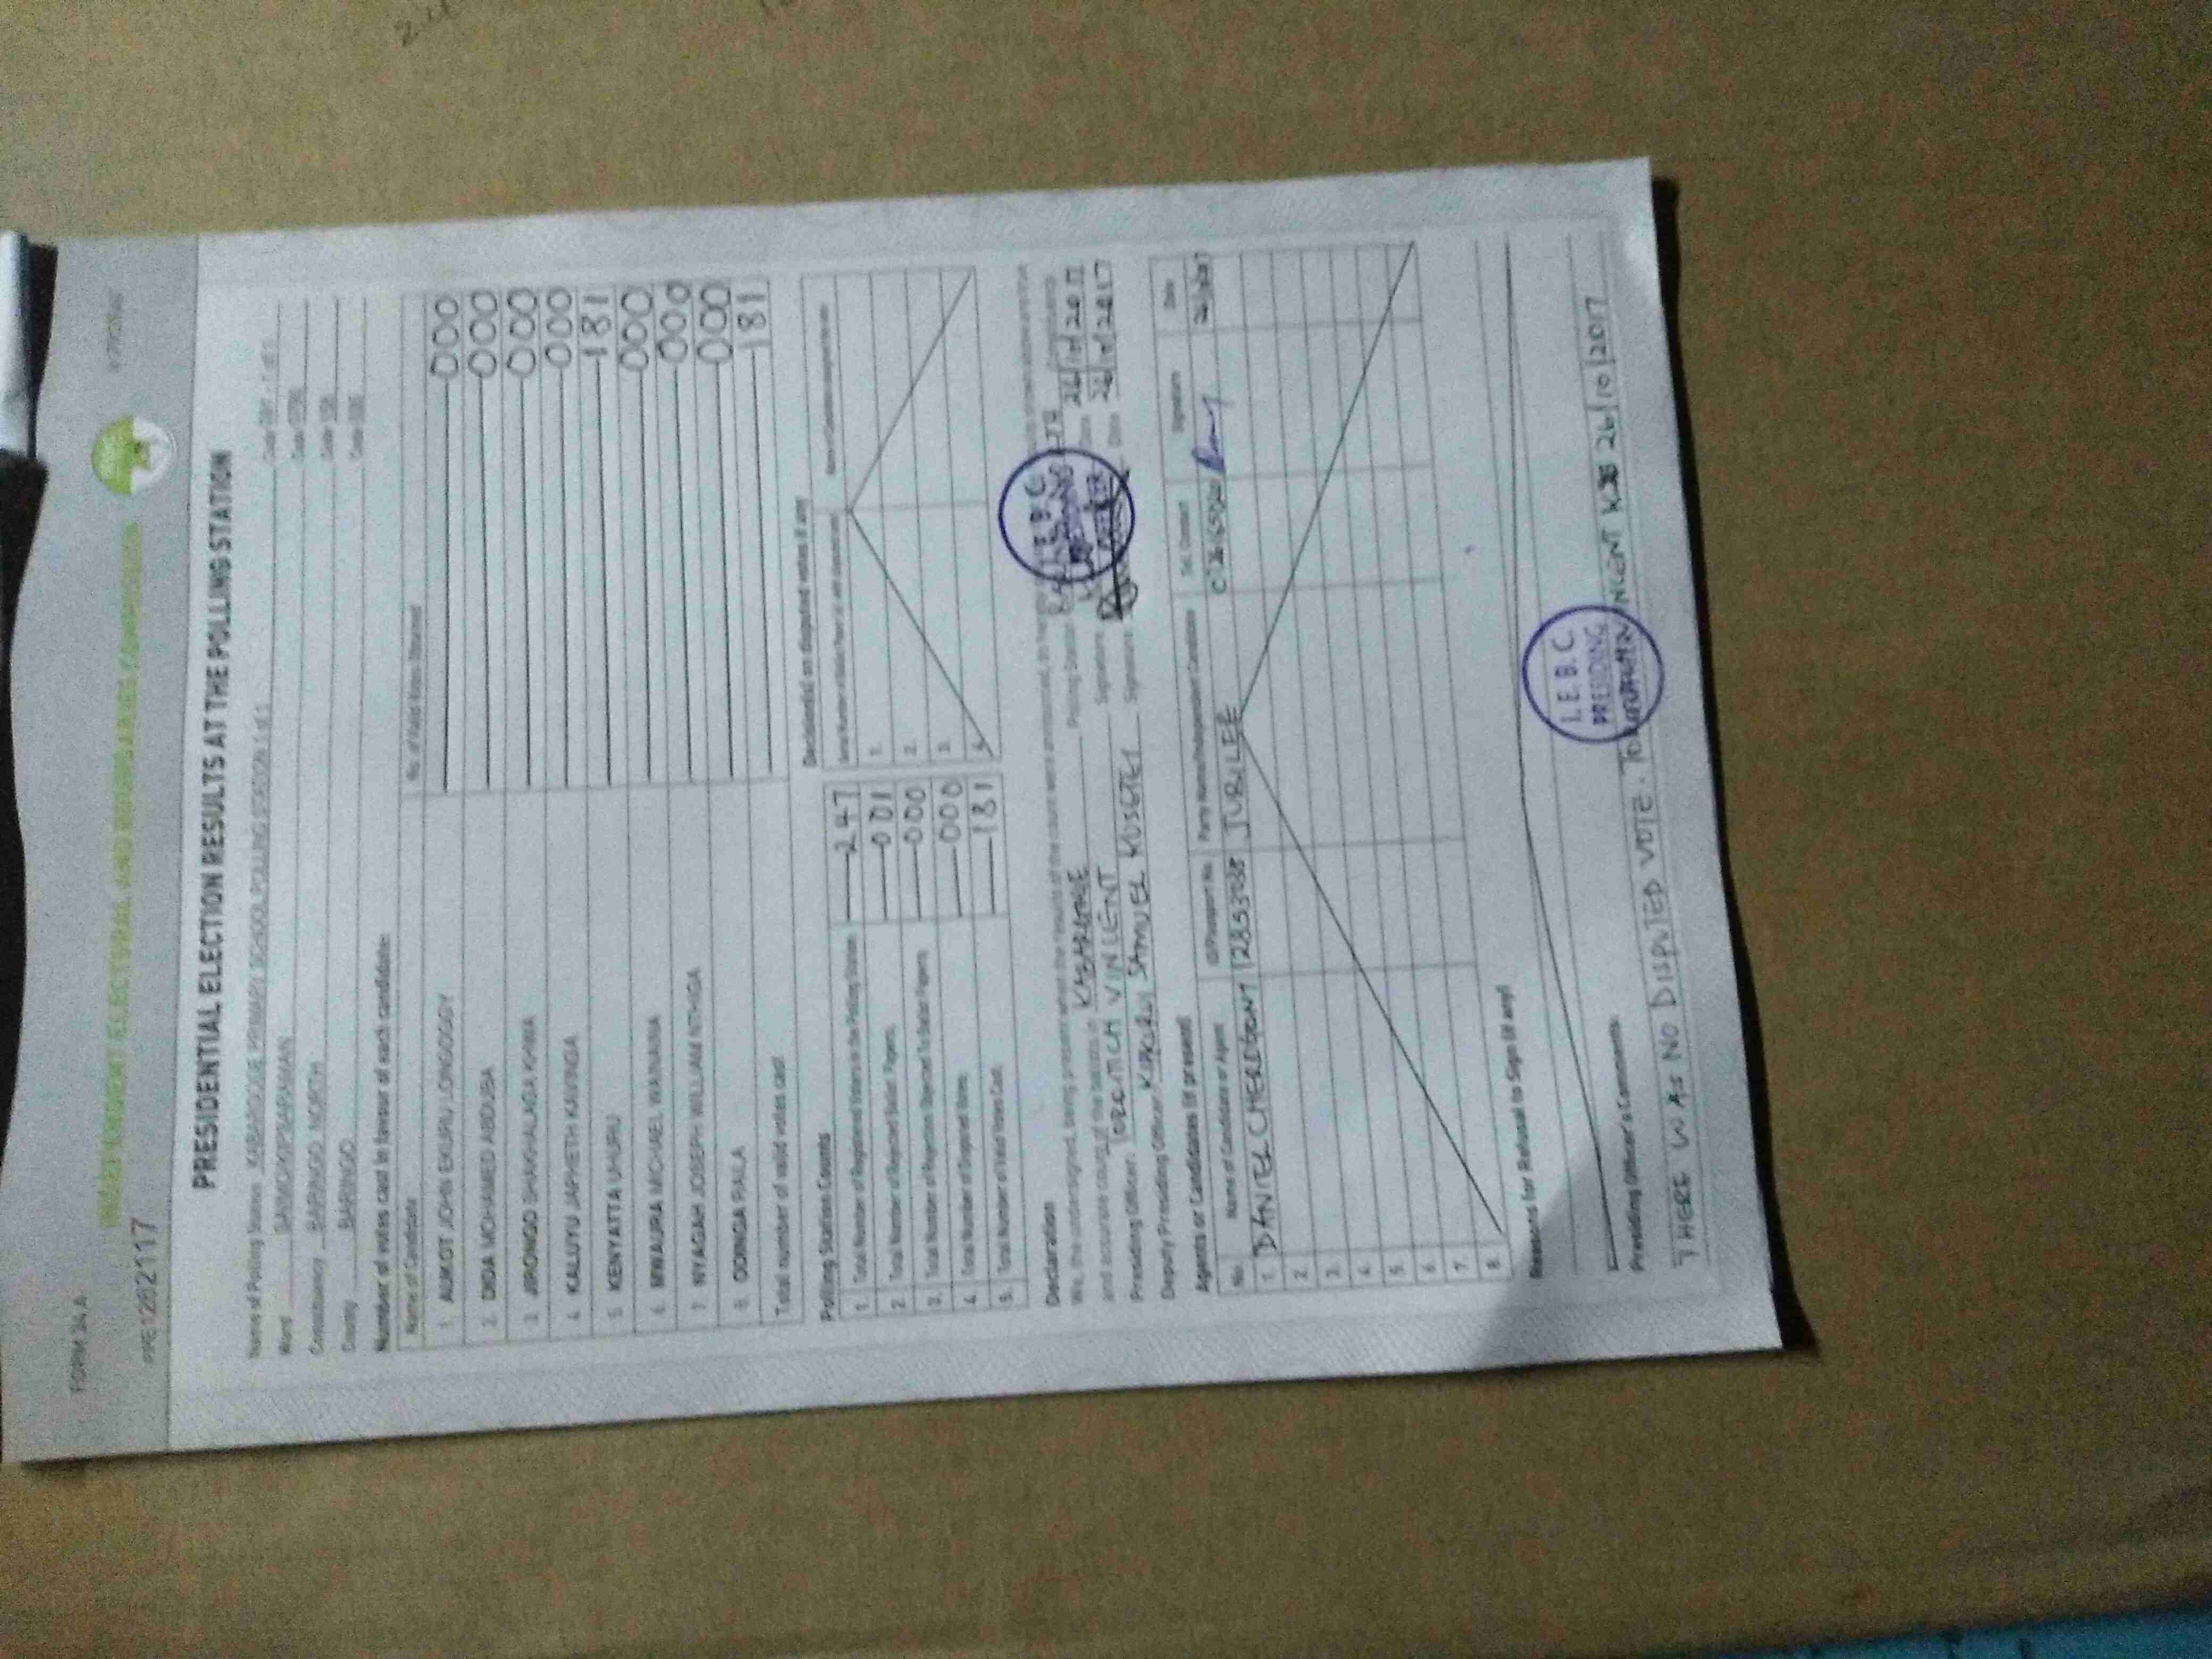 FORM 34A
INDEPENDENT ELECTORAL AND BOUNDARIES COMMISSION
PRESIDENTIAL ELECTION RESULTS AT THE POLLING STATION
Name of Polling Station KABAROQUE PRIMARY SCHOOL POLLING STATION 1 of 1
Ward SAIMO/KIPSARAMAN
Constituency BARINGO NORTH
County BARINGO
Number of votes cast in favour of each candidate:
Name of Candidate No. of Valid Votes Obtained
1. AUKOT JOHN EKURU LONGOGGY 000
2. DIDA MOHAMED ABDUBA 000
3. JIRONGO SHAKHALAGA KHWA 000
4. KALUYU JAPHETH KAVINGA 000
5. KENYATTA UHURU 181
6. MWAURA MICHAEL WAINAINA 000
7. NYAGAH JOSEPH WILLIAM NTHIGA 000
8. ODINGA RAILA 000
Total number of valid votes cast 181
Polling Station Counts
1. Total Number of Registered Voters in the Polling Station 247
2. Total Number of Rejected Ballot Papers 001
3. Total Number of Rejection Objected To Ballot Papers 000
4. Total Number of Disputed Votes 000
5. Total Number of Valid Votes Cast 181
Decision(s) on disputed votes if any
1.
2.
3.
4.
Declaration
We, the undersigned, being present when the results of the count were announced, do
and accurate count of the ballots in
Presiding Officer: VINCENT Signature Date 26/10/2017
Deputy Presiding Officer SAMUEL KOSGEY Signature Date 26/10/2017
I.E.B.C
PRESIDING
OFFICER
Agents or Candidates (if present)
No. Name of Candidate or Agent ID/Passport No. Party Name/Independent Candidate Tel. Contact Signature Date
1. DANIEL JUBILEE
2.
3.
4.
5.
6.
7.
8.
Reasons for Refusal to Sign (if any)
I.E.B.C.
PRESIDING
Presiding Officer's Comments:
THERE WAS NO DISPUTED VOTE. 26/10/2017